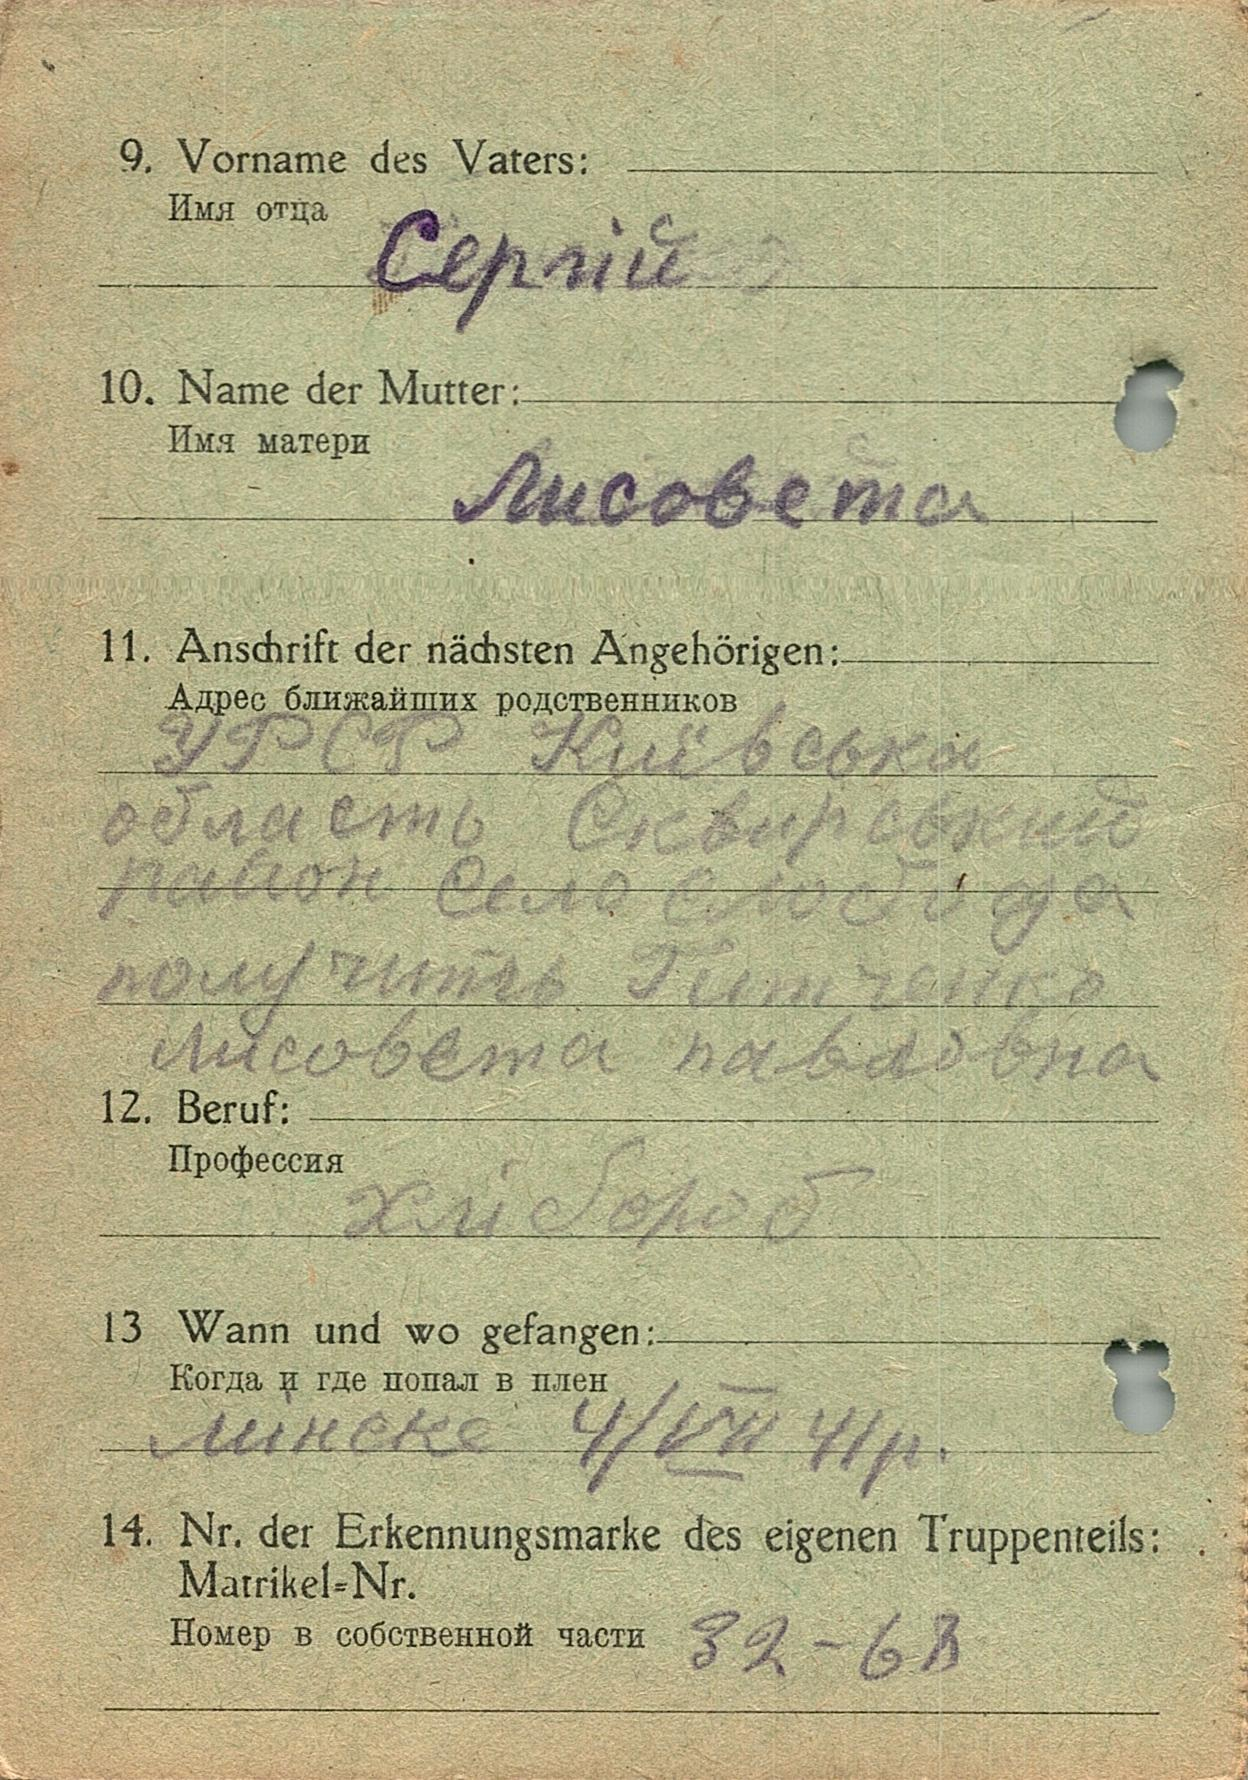 9. Vorname des Vaters:
Имя отца
Сергій
10. Name der Mutter:
Имя матери
Лисовета
11. Anschrift der nächsten Angehörigen:
Адрес ближайших родственников
УРСР Київська
область Сквирський
район Село слобода
получить
Лисовета павловна
12. Beruf:
Профессия
хлібороб
13 Wann und wo gefangen:
Когда и где попал в плен
Мінске 4/VII 41 р.
14. Nr. der Erkennungsmarke des eigenen Truppenteils:
Matrikel-Nr.
Номер в собственной части 32-6